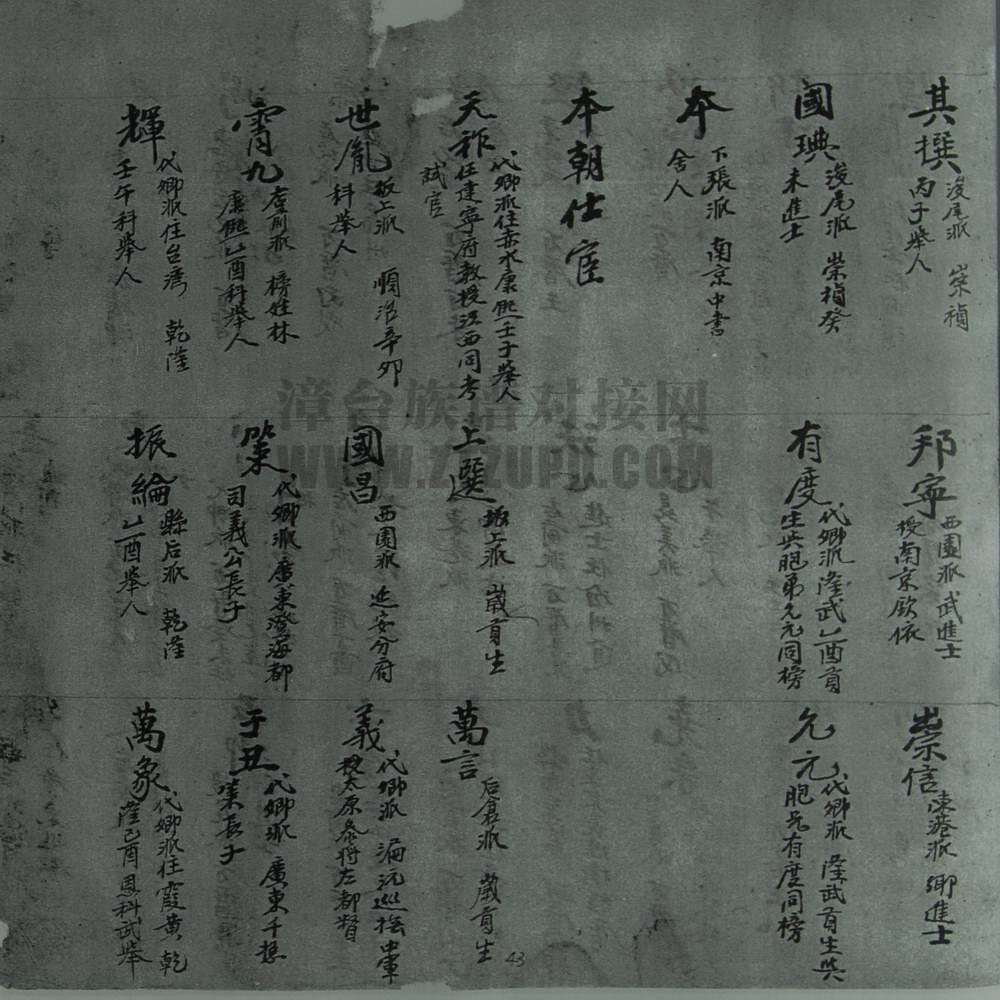 其撰
浚尾派 崇禎
丙子舉人
國琠
浚尾派 崇禎癸
未進士
本
下張派 南京中書
舍人
本朝仕宦
天祚
代卿派住赤水康熙壬子舉人
任建寧府教授江西同考
試官
世胤
坂上派 順治辛卯
科舉人
霄九
庵前派 榜姓林
康熙乙酉科舉人
輝
代卿派住台灣 乾隆
壬午科舉人
邦寧
西園派武進士
授南京欽依
有度
代卿派隆武乙酉貢
生與胞弟允元同榜
上選
坂上派 歲貢生
國昌
西園派 延安分府
策
代卿派廣東澄海都
司義公長子
振綸
縣后派 乾隆
乙酉舉人
崇信
湊港派 鄉進士
允元
代卿派 隆武貢生與
胞兄有度同榜
萬言
后倉派 歲貢生
義
代卿派 偏沅巡撫中軍
授太原參將左都督
于丑
代卿派 廣東千總
策長子
萬象
代卿派住霞黃 乾
隆己酉恩科武舉
漳台族谱对接网
WWW.ZTZUPU.COM
43